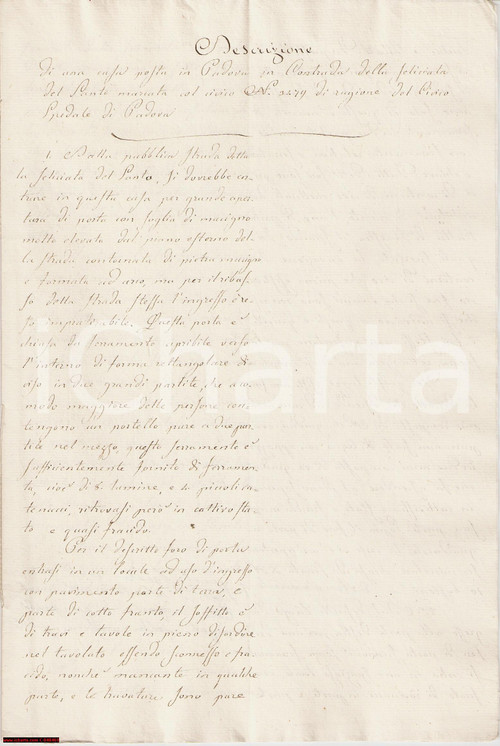 Descrizione
di una casa posta in Padova in Contrada della seliciata
del Santo marcata col civico N.° 3479 di ragione del Civico
Spedale di Padova
1. Dalla pubblica strada detta
la seliciata del Santo, si dovrebbe en-
trare in questa casa per grande aper-
tura di porta con soglia di macigno
molto elevata dal piano esterno del-
la strada contornata di pietra macigno
e formata ad arco, ma per il ribas-
so della strada stessa l'ingresso è re-
so impraticabile. Questa porta è
chiusa da serramento apribile verso
l'interno di forma rettangolare di-
viso in due grandi partite, che a co-
modo maggiore delle persone con-
tengono un portello pure a due par-
tite nel mezzo, questo serramento è
sufficientemente fornito di ferramen-
ta, cioè di 
ritrovasi però in cattivo sta-
to e quasi fracido.
Per il descritto foro di porta
entrasi in un locale ad uso d'ingresso
con pavimento parte di terra, e
parte di cotto franto, il soffitto è
di travi e tavole in pieno disordine
nel tavolato essendo sconnesso e fra-
cido, nonché mancante in qualche
parte, e le travature sono pure